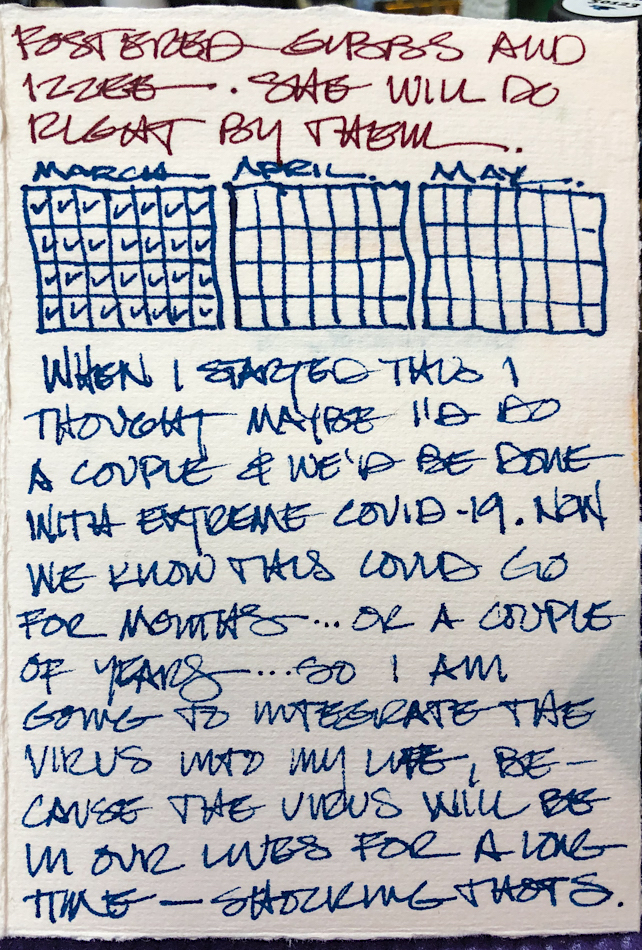 FOSTERED GIBBS AND
IZZEE—. SHE WILL DO
RIGHT BY THEM.
MARCH APRIL. MAY.
WHEN I STARTED THIS I
THOUGHT MAYBE I'D DO
A COUPLE & WE'D BE DONE
WITH EXTREME COVID-19. NOW
WE KNOW THIS COULD GO
FOR MONTHS...OR A COUPLE
OF YEARS...SO I AM
GOING TO INTEGRATE THE
VIRUS INTO MY LIFE, BE-
CAUSE THE VIRUS WILL BE
IN OUR LIVES FOR A LONG
TIME — SHOCKING THOTS.